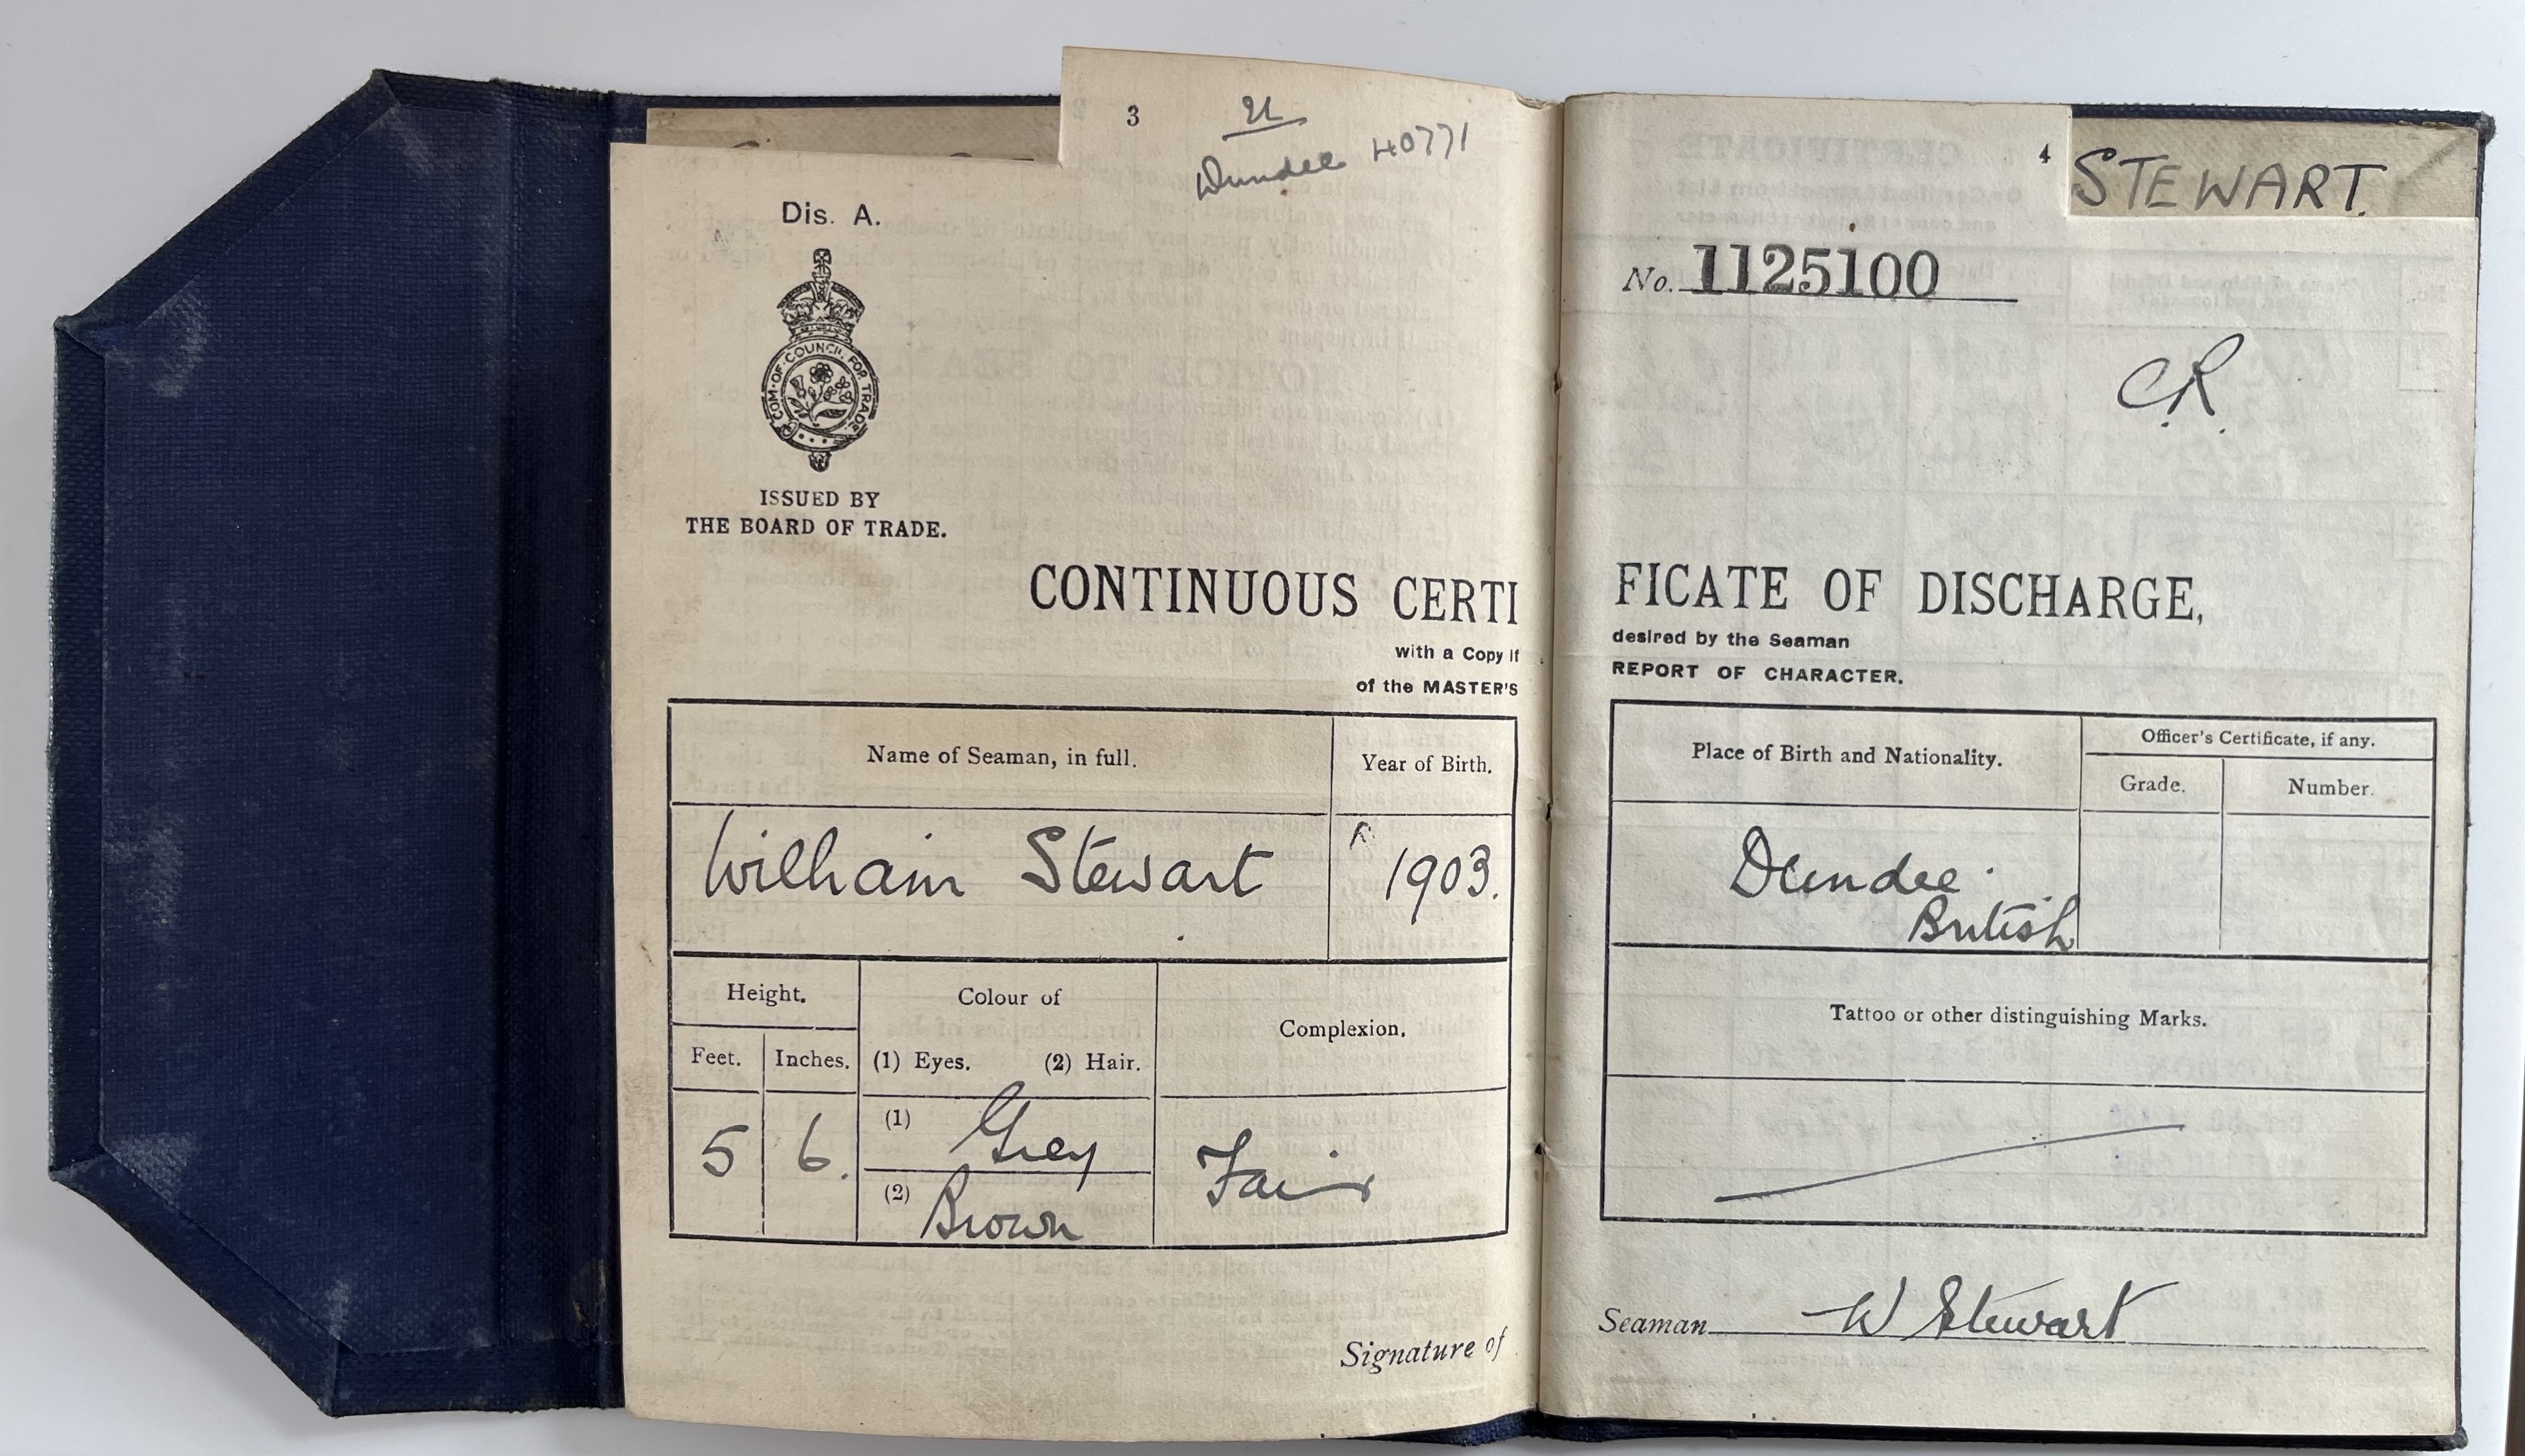 3
Dundee 40771
Dis. A.
COM. OF. COUNCIL. FOR TRADE.
ISSUED BY
THE BOARD OF TRADE.
CONTINUOUS CERTI
with a Copy if
of the MASTER'S
Name of Seaman, in full.
Year of Birth.
William Stewart
1903.
Height.
Colour of
Complexion.
Feet.
Inches.
(1) Eyes.
(2) Hair.
5
6.
(1) Grey
(2) Brown
Fair
Signature of
4
STEWART.
No. 1125100
C.R.
FICATE OF DISCHARGE,
desired by the Seaman
REPORT OF CHARACTER.
Place of Birth and Nationality.
Officer's Certificate, if any.
Grade.
Number.
Dundee.
British
Tattoo or other distinguishing Marks.
Seaman W Stewart